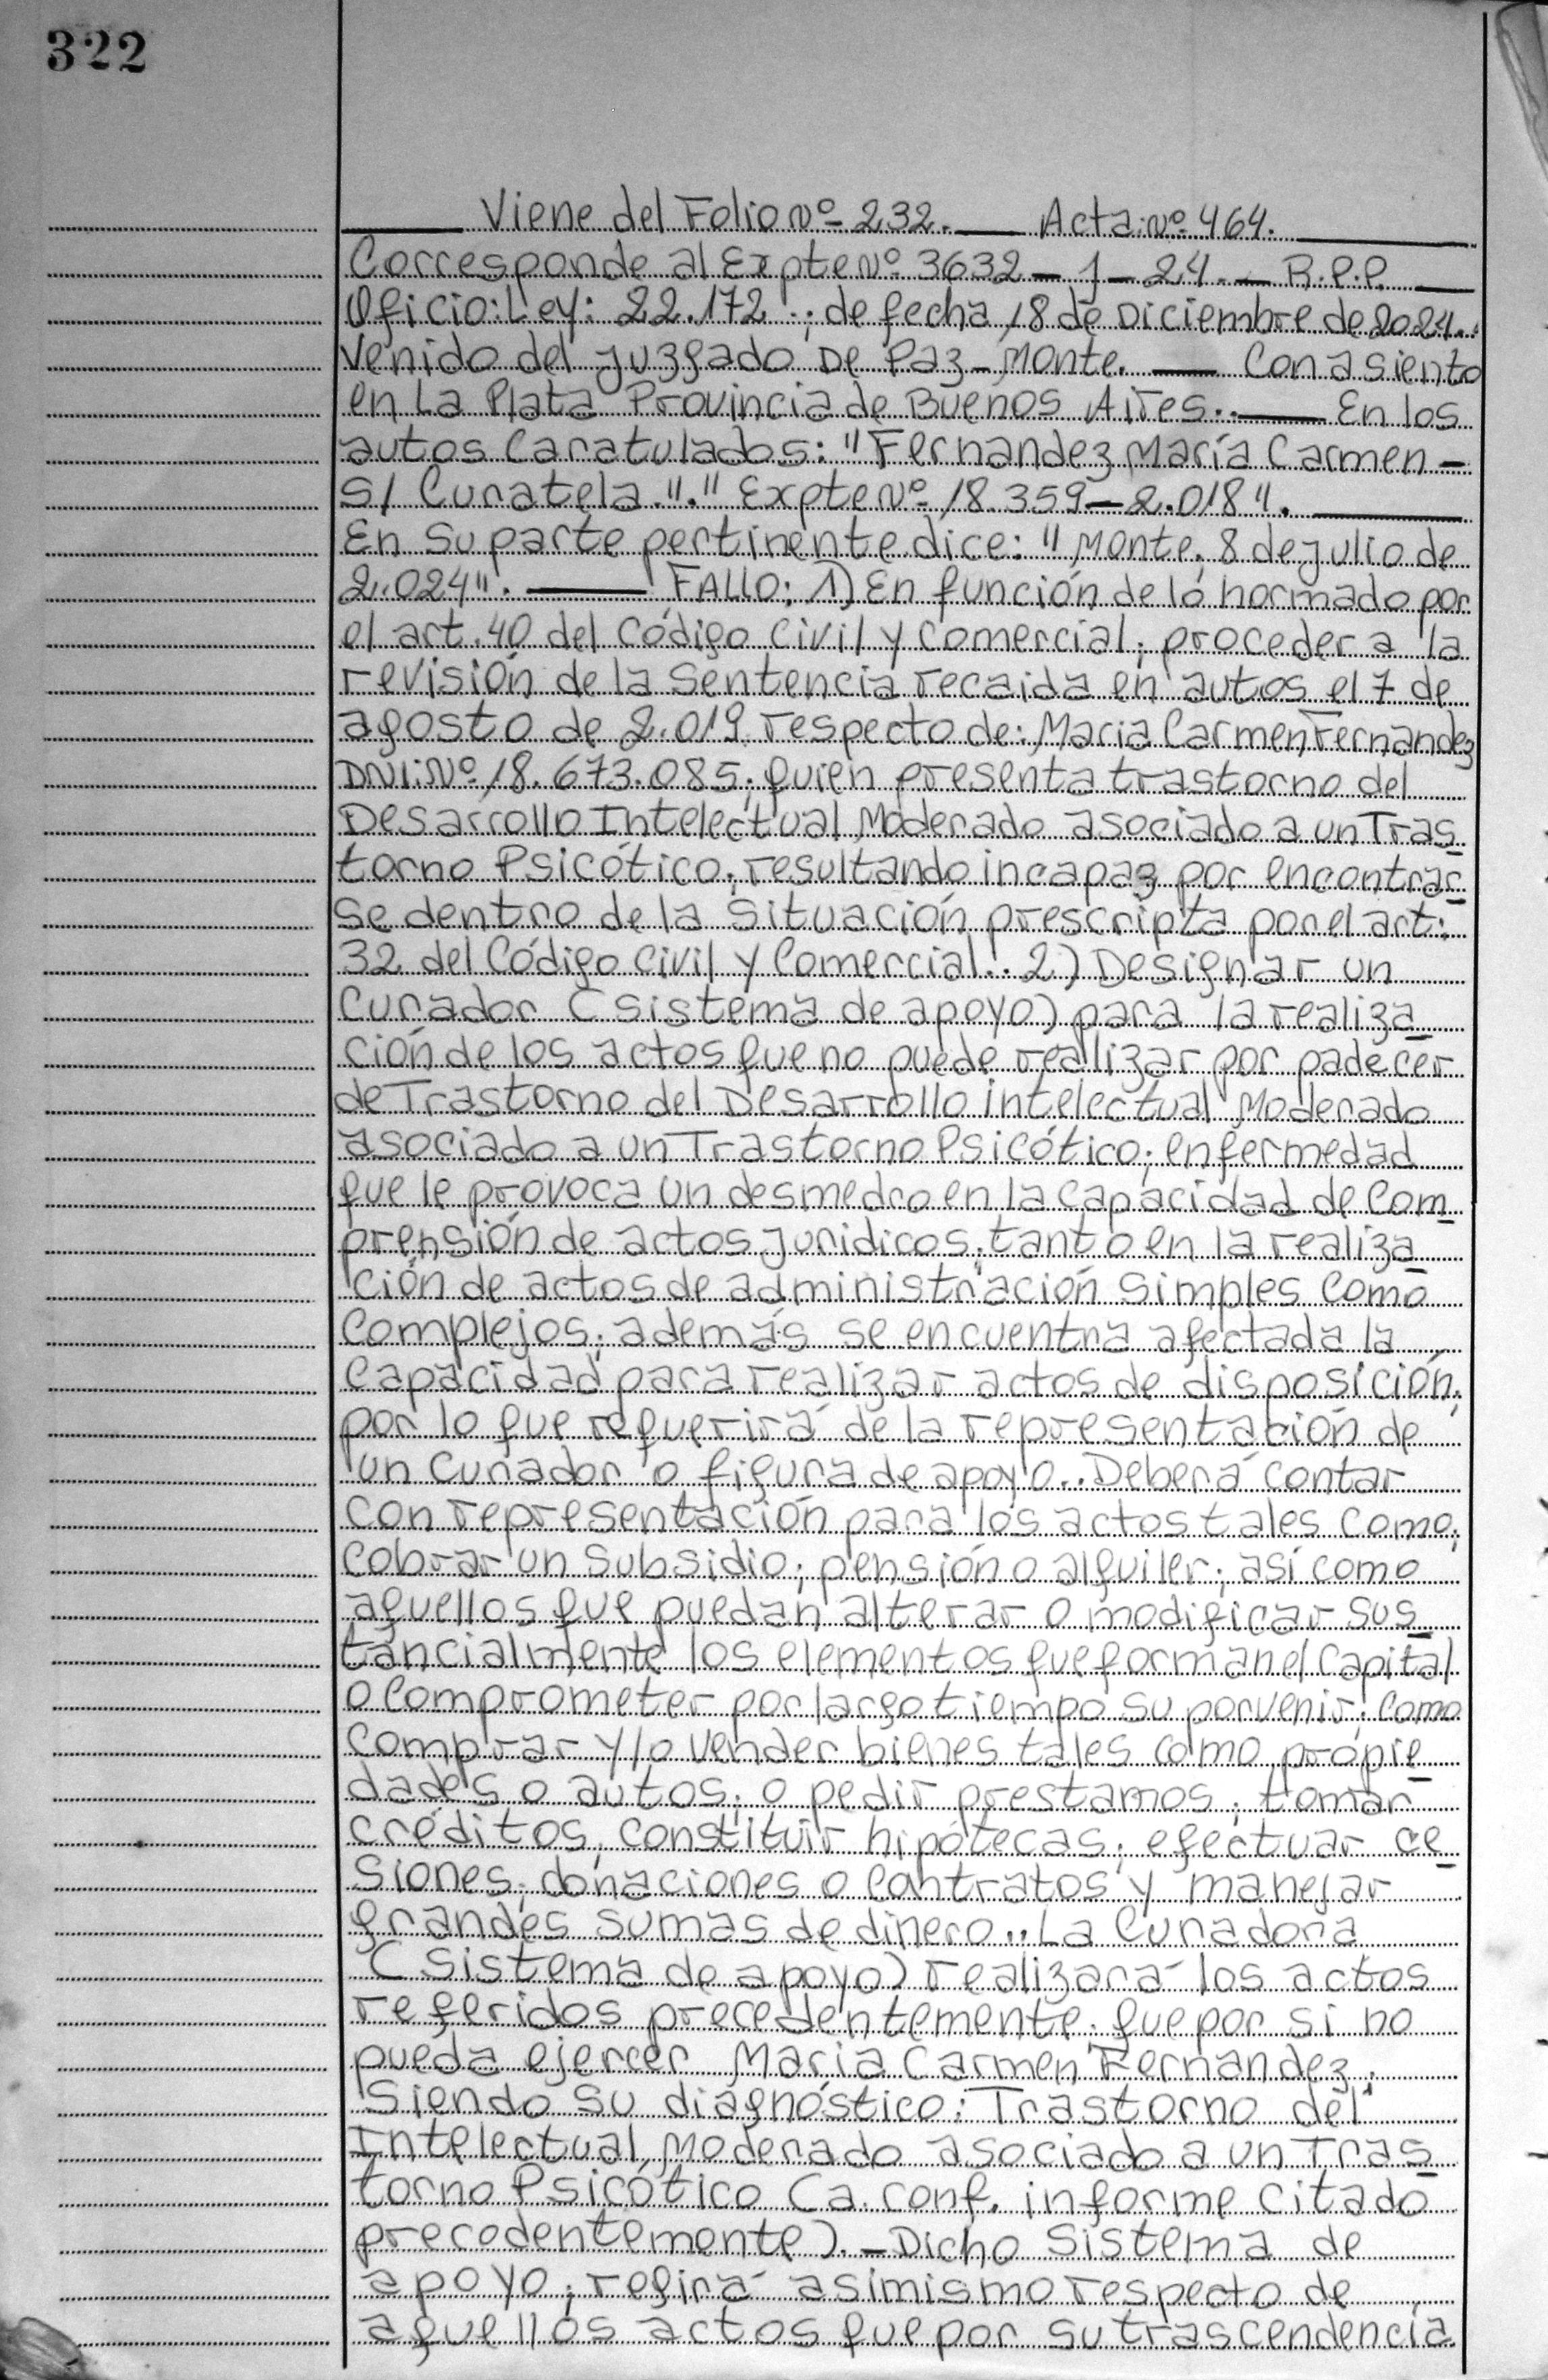 322
Viene del Folio Nº 232. — Acta: Nº 464.
Corresponde al Expte Nº 3632 — J — 24. — R.P.P.
Oficio: Ley: 22.172.; de fecha 18 de Diciembre de 2024.
Venido del Juzgado De Paz - Monte. — Con asiento
en La Plata Provincia de Buenos Aires.. — En los
autos Caratulados: "Fernandez María Carmen -
S/ Curatela.". " Expte Nº 18.359 - 2.018".
En su parte pertinente dice: "Monte, 8 de julio de
2.024". — FALLO: 1) En función de lo normado por
el art. 40 del Código Civil y Comercial; proceder a la
revisión de la Sentencia recaida en autos el 7 de
agosto de 2.019 respecto de: Maria Carmen Fernandez
DNI: Nº 18.673.085; quien presenta trastorno del
Desarrollo Intelectual Moderado asociado a un Tras
torno Psicótico; resultando incapaz por encontrar
se dentro de la situación prescripta por el art:
32 del Código Civil y Comercial.. 2) Designar un
Curador (sistema de apoyo) para la realiza
ción de los actos que no puede realizar por padecer
de Trastorno del Desarrollo intelectual Moderado
asociado a un Trastorno Psicótico; enfermedad
que le provoca un desmedro en la capacidad de Com
prensión de actos juridicos; tanto en la realiza
ción de actos de administración simples como
Complejos; además se encuentra afectada la
Capacidad para realizar actos de disposición;
por lo que requerirá de la representación de
un Curador o figura de apoyo.. Deberá contar
con representación para los actos tales como;
cobrar un subsidio; pensión o alquiler; así como
aquellos que puedan alterar o modificar sus
tancialmente los elementos que forman el Capital
o Comprometer por largo tiempo su porvenir; como
comprar y/o vender bienes tales como propie
dades o autos; o pedir prestamos; tomar
créditos; constituir hipótecas; efectuar ce
siones; donaciones o Contratos y manejar
grandes sumas de dinero.. La Curadora
(Sistema de apoyo) realizará los actos
referidos precedentemente. que por si no
pueda ejercer Maria Carmen Fernandez;
Siendo su diagnóstico: Trastorno del
Intelectual Moderado asociado a un Tras
torno Psicótico (a. conf. informe citado
precedentemente). - Dicho Sistema de
apoyo; regirá asimismo respecto de
aquellos actos que por su trascendencia